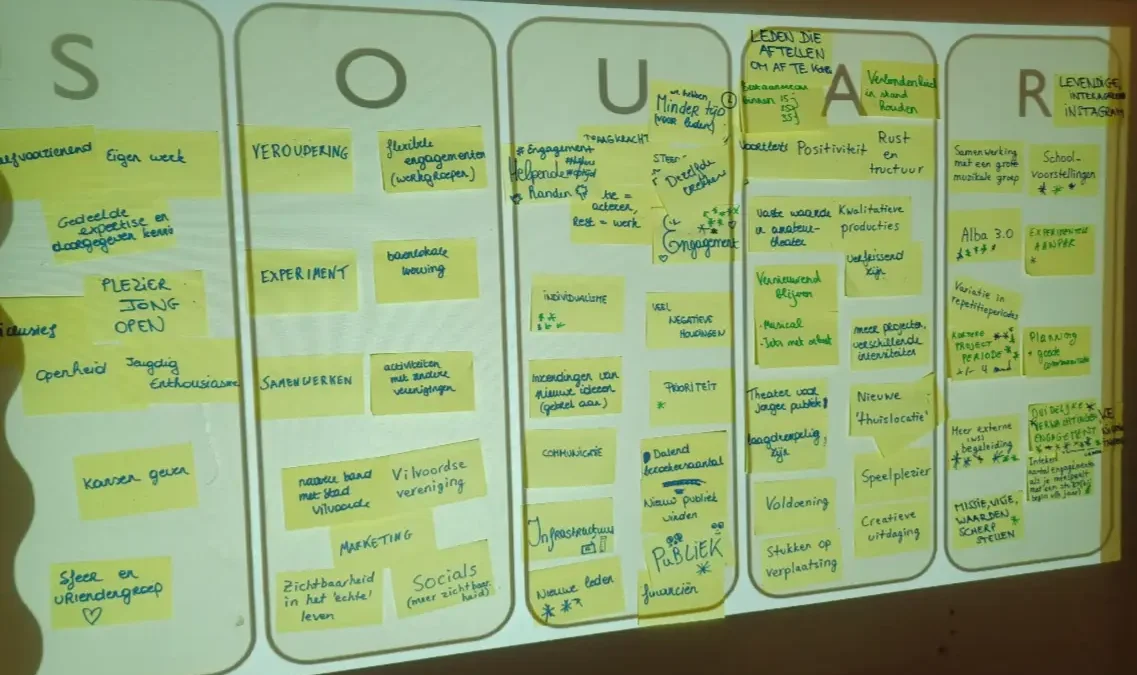 S
Eigen werk
Gedeelde
expertise en
doorgegeven kennis
PLEZIER
JONG
OPEN
Openheid
Jeugdig
Enthousiasme
Kansen geven
Sfeer en
vriendengroep
O
VEROUDERING
flexibele
engagementen
(werkgroepen)
EXPERIMENT
bovenlokale
werving
SAMENWERKEN
activiteiten
met andere
verenigingen
nauwere band
met stad
vilvoorde
Vilvoordse
vereniging
MARKETING
Zichtbaarheid
in het 'echte'
leven
Socials
(meer zichtbaar
heid)
U
we hebben
Minder tijd
(voor leden)
DRAAGKRACHT
# Engagement
Helpende
Handen
acteren,
rest = werk
Engagement
INDIVIDUALISME
VEEL
NEGATIEVE
HOUDINGEN
Inzendingen van
nieuwe ideeën
(gebrek aan)
PRIORITEIT
COMMUNICATIE
Dalend
bezoekersaantal
Infrastructuur
Nieuw publiek
vinden
PUBLIEK
Nieuwe leden
financiën
A
LEDEN DIE
AFTELLEN
OM AF TE KOMEN
Verbondenheid
in stand
houden
binnen 15j
25j
35j
Positiviteit
Rust
en
tructuur
vaste waarde
in amateur-
theater
Kwalitatieve
producties
verfrissend
zijn
Vernieuwend
blijven
- Musical
- Iets met orkest
meer projecten,
verschillende
intensiteiten
Theater voor
jonger publiek!
Nieuwe
'thuislocatie'
laagdrempelig
zijn
Speelplezier
Voldoening
Creatieve
uitdaging
Stukken op
verplaatsing
R
LEVENDIGE,
INSTAGRAM
Samenwerking
met een grote
muzikale groep
School-
voorstellingen
Alba 3.0
EXPERIMENTELE
AANPAK
Variatie in
repetitieperiodes
KORTERE
PROJECT
PERIODE
+/- 4 mnd
Planning
+ goede
communicatie
Meer externe
begeleiding
DUIDELIJKE
VERWACHTINGEN
ENGAGEMENT
aantal engagementen
als je meespeelt
MISSIE, VISIE,
WAARDEN
SCHERP
STELLEN